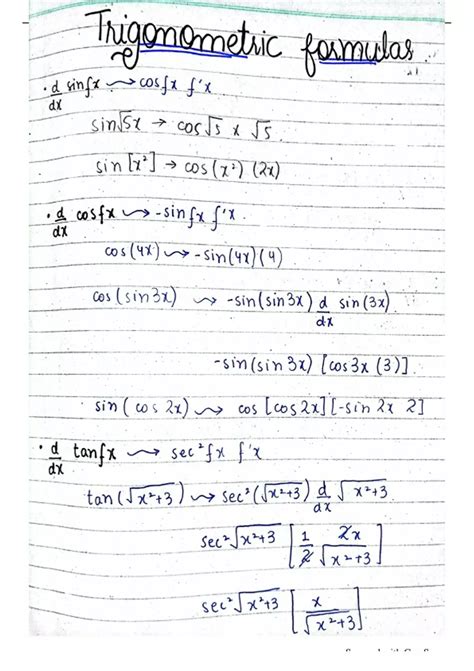 Trigonometric formulas
• d/dx sinfx ⇝ cosfx f'x
sin√5x → cos√5 x √5
sin [x²] → cos (x²) (2x)
• d/dx cosfx ⇝ -sinfx f'x
cos (4x) ⇝ -sin(4x)(4)
cos (sin3x) ⇝ -sin(sin3x) d/dx sin(3x)
-sin(sin 3x) [cos3x (3)]
sin ( cos 2x) ⇝ cos [cos2x] [-sin 2x 2]
• d/dx tanfx ⇝ sec²fx f'x
tan (√x²+3) ⇝ sec² (√x²+3) d/dx √x²+3
sec² √x²+3 [1/2 2x/√x²+3]
sec² √x²+3 [x/√x²+3]